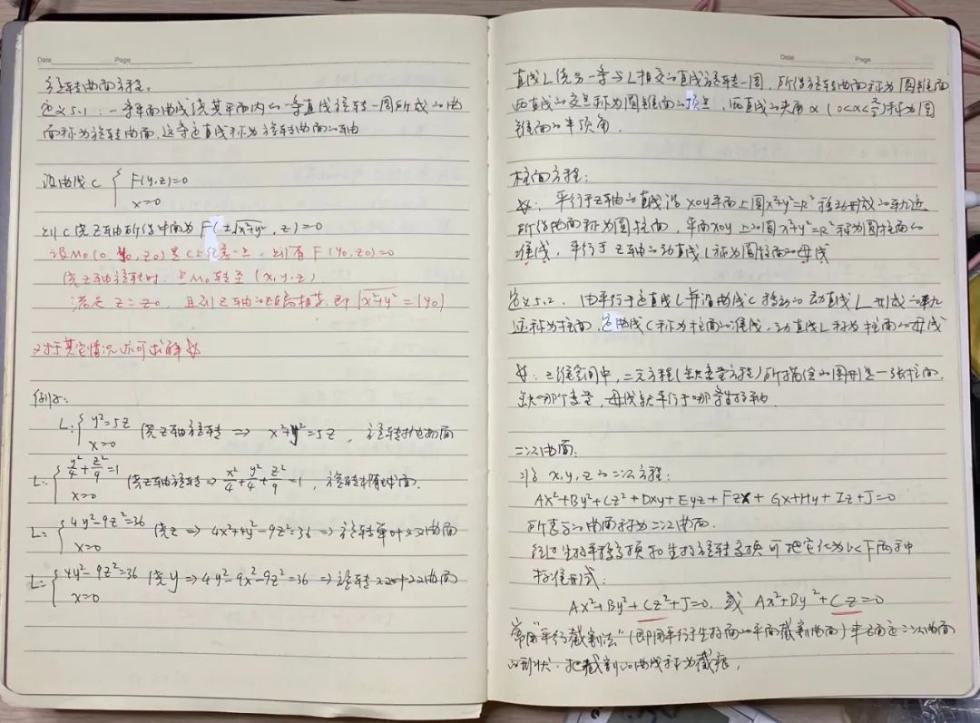 Date Page
旋转曲面方程。
定义5.1:一条平面曲线绕其平面内的一条直线旋转一周所成的曲
面称为旋转曲面,这条定直线称为旋转曲面的轴
设曲线C { F(y,z)=0
x=0
则C绕z轴所得曲面为 F(±√x²+y², z)=0
设M₀(0, y₀, z₀)是C上任意一点,则有 F(y₀,z₀)=0
绕z轴旋转时,点M₀转至(x,y,z)
满足 z=z₀,且到z轴的距离相等,即 √x²+y²=|y₀|
对于其它情况亦可求解
例如:
L:{ y²=5z 绕z轴旋转 ⇒ x²+y²=5z,旋转抛物面
x=0
L:{ y²/4+z²/9=1 绕z轴旋转 ⇒ x²/4+y²/4+z²/9=1,旋转椭球面.
x=0
L:{ 4y²-9z²=36 绕z ⇒ 4x²+4y²-9z²=36 ⇒ 旋转单叶双曲面
x=0
L:{ 4y²-9z²=36 绕y ⇒ 4y²-9x²-9z²=36 ⇒ 旋转双叶双曲面
x=0
Date Page
直线L绕另一条与L相交的直线旋转一周,所得旋转曲面称为圆锥面
两直线的交点称为圆锥面的顶点,两直线的夹角α(0<α<π/2)称为圆
锥面的半顶角.
柱面方程:
平行于z轴的直线沿xoy平面上圆x²+y²=R²移动形成的轨迹
所得曲面称为圆柱面,平面xoy上的圆x²+y²=R²称为圆柱面的
准线,平行于z轴的动直线L称为圆柱面的母线
定义5.2.由平行于定直线L并沿曲线C移动的动直线L形成的轨
迹称为柱面,定曲线C称为柱面的准线,动直线L称为柱面的母线
:三维空间中,二元方程(缺变量方程)所描绘的图形是一张柱面,
缺哪个变量,母线就平行于哪条坐标轴.
二次曲面.
x,y,z的二次方程:
Ax²+By²+Cz²+Dxy+Eyz+Fzx+Gx+Hy+Iz+J=0
所表示的曲面称为二次曲面.
经过坐标平移变换和坐标旋转变换可把它化为以下两种
标准形式:
Ax²+By²+Cz²+J=0.或 Ax²+By²+Cz=0
常用"平行截割法"(即用平行于坐标面的平面截割曲面)来确定二次曲面
的形状.把截割的曲线称为截痕.